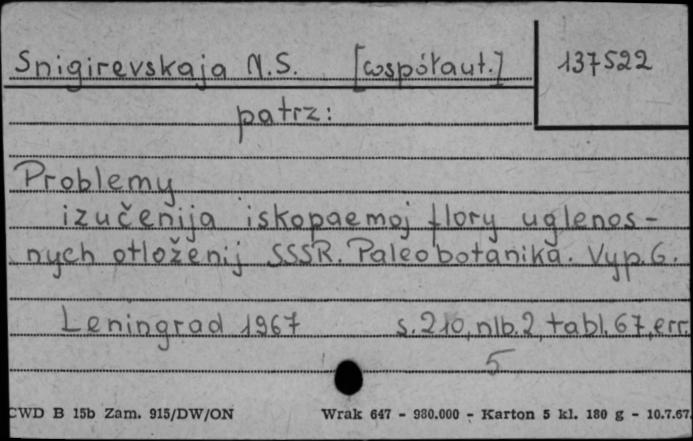 Snigirevskaja N.S. [współaut.] 137522
patrz:
Problemy
izučenija iskopaemoj flory uglenos-
nych otloženij SSSR. Paleobotanika. Vyp. 6.
Leningrad 1967 s. 210, nlb. 2, tabl. 67, err.
5
CWD B 15b Zam. 915/DW/ON Wrak 647 - 980.000 - Karton 5 kl. 180 g - 10.7.67.